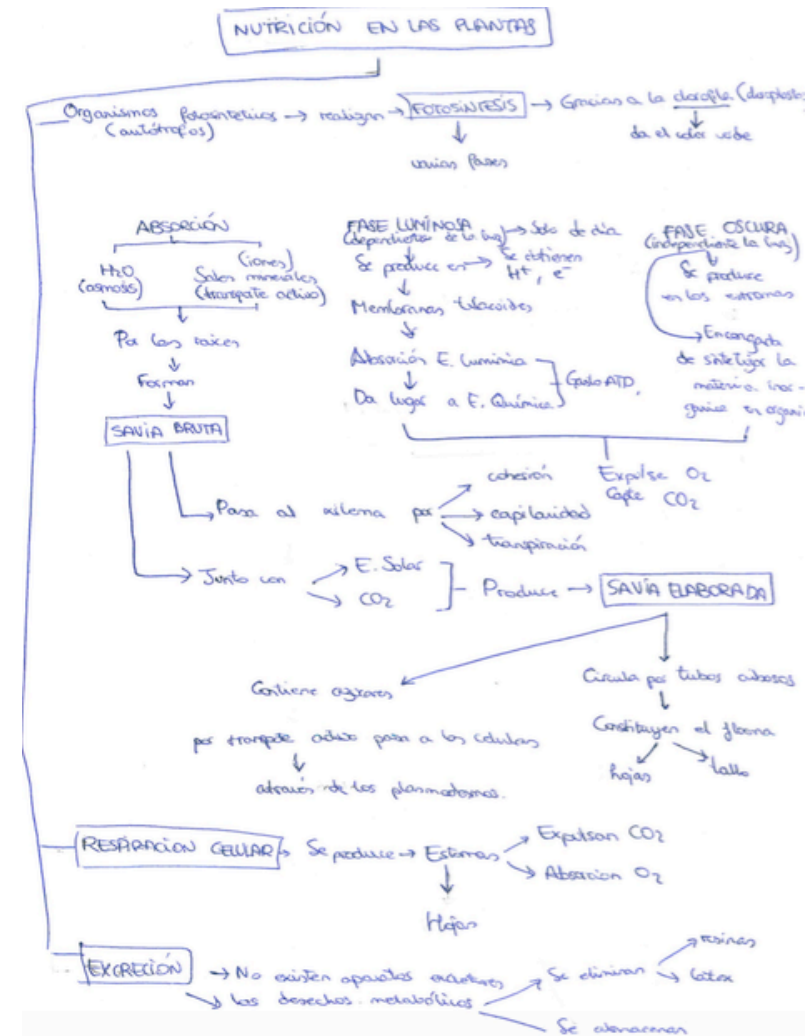 NUTRICIÓN EN LAS PLANTAS
Organismos fotosinteticos → realizan → FOTOSÍNTESIS → Gracias a la clorofila (cloroplastos
(autótrofos)
da el color verde
varias fases
ABSORCIÓN
H2O
(osmosis)
(iones)
Sales minerales
(transporte activo)
Por las raices
Forman
SAVIA BRUTA
FASE LUMÍNOSA → Solo de día
(dependiente de la luz)
Se produce en → Se obtienen
H+, e-
Membranas tilacoides
Absorción E. Luminica
Da lugar a E. Química
FASE OSCURA
(independiente la luz)
Se produce
en los estromas
Encargada
de sintetizar la
materia inor-
ganica en organi
Expulsa O2
Capta CO2
Pasa al xilema por
cohesión
capilaridad
transpiración
Junto con
E. Solar
CO2
Produce → SAVIA ELABORADA
Contiene azúcares
por transporte activo pasa a las celulas
através de los plasmodesmos.
Circula por tubos cribosos
Constituyen el floema
hojas
tallo
RESPIRACION CELULAR → Se produce → Estomas
Expulsan CO2
Absorcion O2
Hojas
EXCRECIÓN → No existen aparatos excretores
Los desechos metabólicos
Se eliminan
resinas
latex
Se almacenan